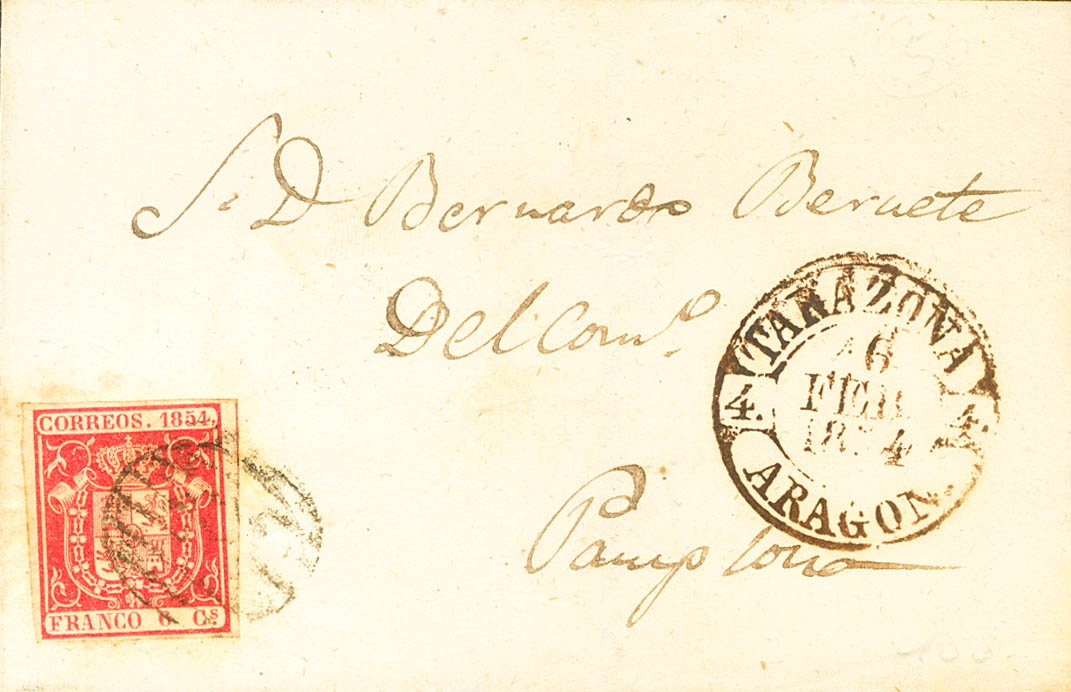 S. D Bernardo Beruete
Del Com.º
Pamplona
TARAZONA
16
FEB.
1854
4.
ARAGON.
CORREOS. 1854.
FRANCO 6 Cs